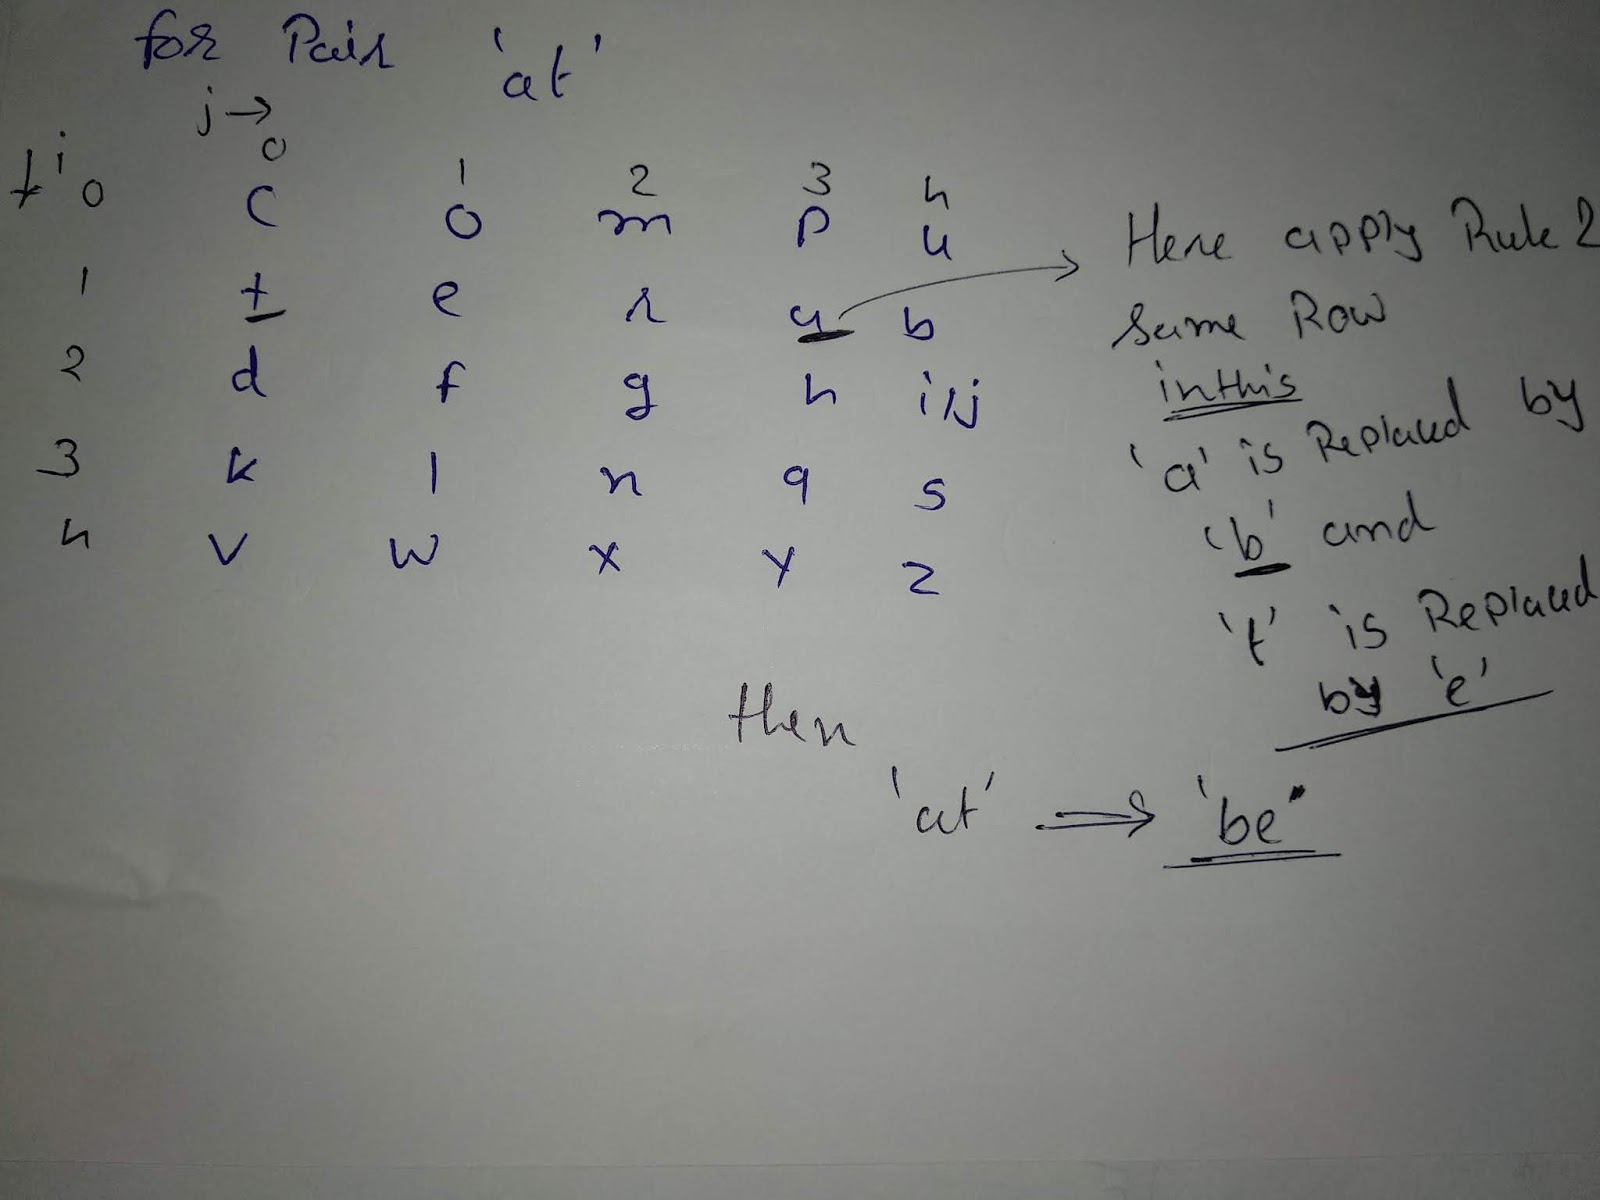 for Pair 'at'
j→
↓ i 0 1 2 3 4
0 C O m P u
1 t e r a b
2 d f g h i/j
3 k l n q s
4 V W X Y Z
Here apply Rule 2
same Row
in this
'a' is Replaced by
'b' and
't' is Replaced
by 'e'
then
'at' ⇒ 'be'